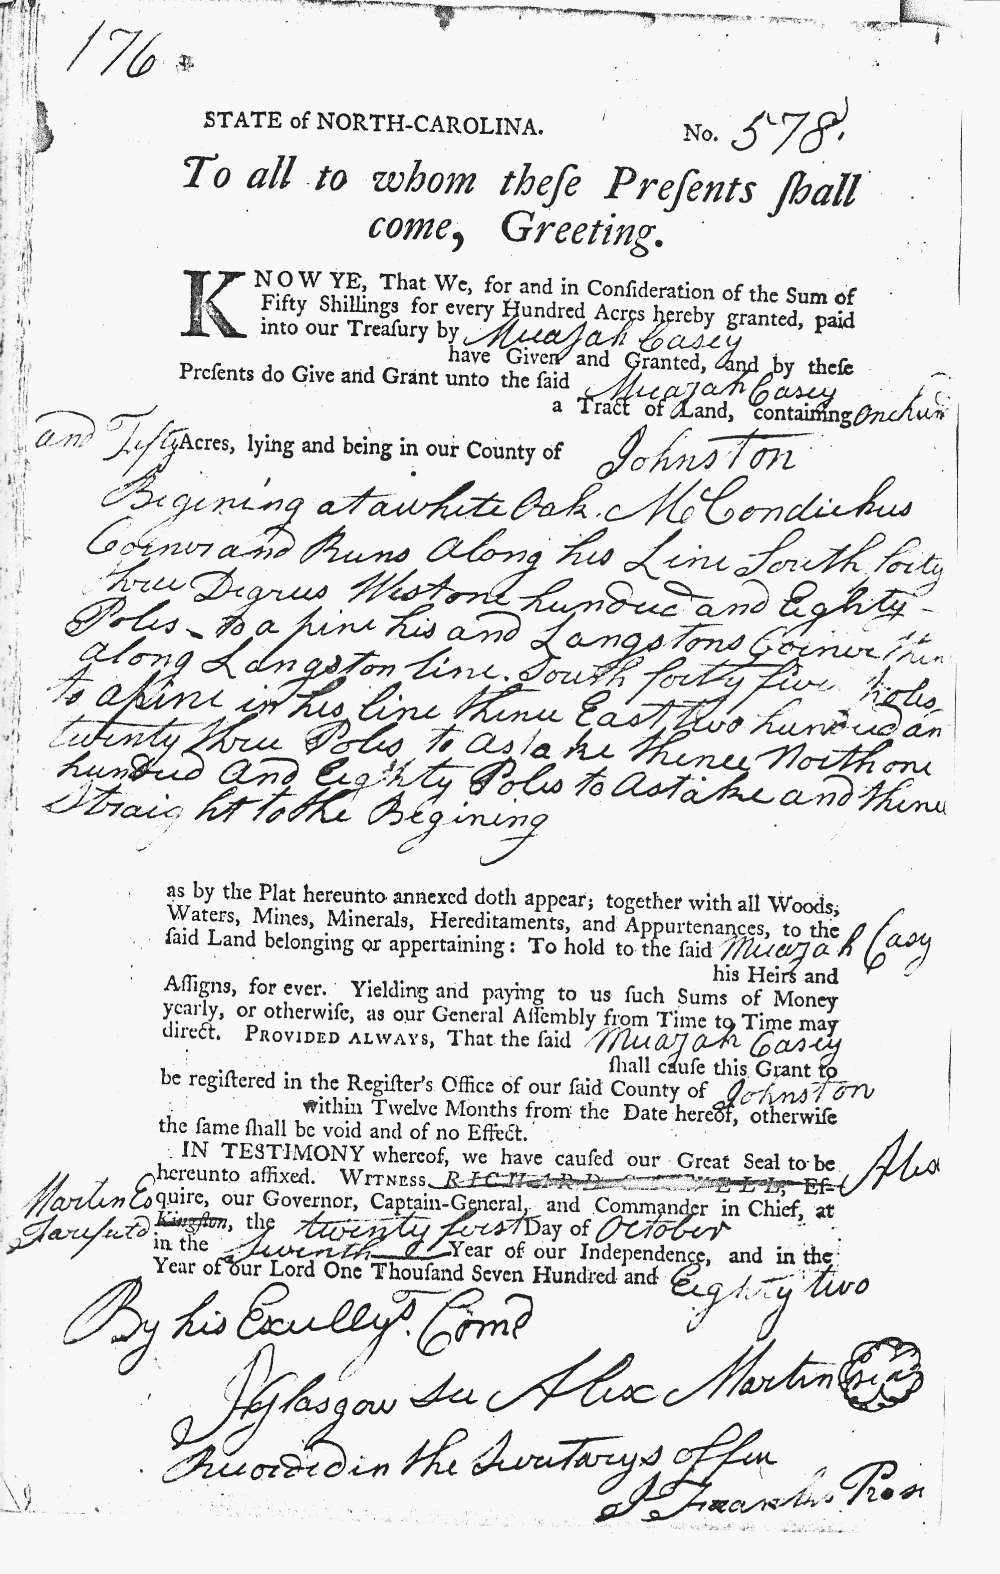 176
STATE of NORTH-CAROLINA. No. 578.
To all to whom theſe Preſents ſhall
come, Greeting.
KNOW YE, That We, for and in Conſideration of the Sum of
Fifty Shillings for every Hundred Acres hereby granted, paid
into our Treaſury by Micajah Casey
have Given and Granted, and by theſe
Preſents do Give and Grant unto the ſaid Micajah Casey
a Tract of Land, containing One hun
and Fifty Acres, lying and being in our County of Johnston
Begining at a white Oak. McCondickus
Corner and Runs along his Line South forty
three Degrees West one hundred and Eighty
Poles to a pine his and Langstons Corner then
along Langston line. South forty five poles
to a pine in his line thence East two hundred an
twenty three Poles to a stake thence North one
hundred and Eighty Poles to a stake and thence
Straight to the Begining
as by the Plat hereunto annexed doth appear; together with all Woods,
Waters, Mines, Minerals, Hereditaments, and Appurtenances, to the
ſaid Land belonging or appertaining: To hold to the ſaid Micajah Casy
his Heirs and
Aſſigns, for ever. Yielding and paying to us ſuch Sums of Money
yearly, or otherwiſe, as our General Aſſembly from Time to Time may
direct. PROVIDED ALWAYS, That the ſaid Micajah Casey
ſhall cauſe this Grant to
be regiſtered in the Regiſter's Office of our ſaid County of Johnston
within Twelve Months from the Date hereof, otherwiſe
the ſame ſhall be void and of no Effect.
IN TESTIMONY whereof, we have cauſed our Great Seal to be
hereunto affixed. WITNESS RICHARD CASWELL, Eſ- Alex
Martin Es quire, our Governor, Captain-General, and Commander in Chief, at
Kingſton, the twenty first Day of October
in the Seventh Year of our Independence, and in the
Year of our Lord One Thouſand Seven Hundred and Eighty two
By his Excellys. Comd
J Glasgow Sec Alex Martin
Recorded in the Secretarys office